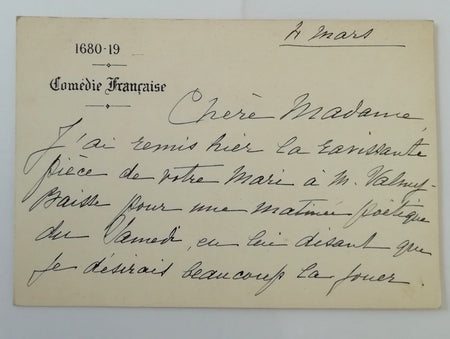 4 mars
1680-19
Comédie Française
Chère Madame,
J'ai remis hier la ravissante
pièce de votre mari à M. Valmy-
Baisse pour une matinée poétique
du Samedi, en lui disant que
je désirais beaucoup la jouer.